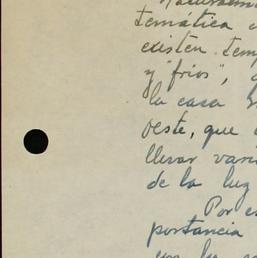 temática
existen tem
y "fríos",
la casa
oeste, que
llevar vari
de la luz
Por e
portancia